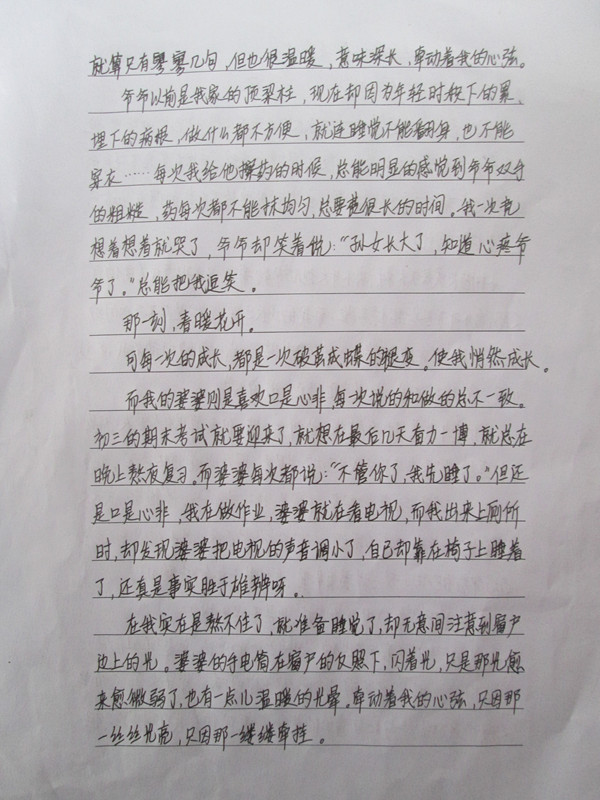 就算只有寥寥几句，但也很温暖，意味深长，牵动着我的心弦。
爷爷以前是我家的顶梁柱，现在却因为年轻时候下的累、
埋下的病根，做什么都不方便，就连睡觉不能翻身，也不能
穿衣……每次我给他擦药的时候，总能明显的感觉到爷爷双手
的粗糙，药每次都不能抹均匀，总要搓很长的时间。我一次竟
想着想着就哭了，爷爷却笑着说：“孙女长大了，知道心疼爷
爷了。”总能把我逗笑。
那一刻，春暖花开。
可每一次的成长，都是一次破茧成蝶的蜕变。使我悄然成长。
而我的婆婆则是喜欢口是心非，每次说的和做的总不一致。
初三的期末考试就要迎来了，就想在最后几天奋力一博，就总在
晚上熬夜复习。而婆婆每次都说：“不管你了，我先睡了。”但还
是口是心非，我在做作业，婆婆就在看电视，而我出来上厕所
时，却发现婆婆把电视的声音调小了，自己却靠在椅子上睡着
了，还真是事实胜于雄辨呀。
在我实在是熬不住了，就准备睡觉了，却无意间注意到窗户
边上的光。婆婆的手电筒在窗户的反照下，闪着光，只是那光愈
来愈微弱了，也有一点儿温暖的光晕。牵动着我的心弦，只因那
一丝丝光亮，只因那一缕缕牵挂。